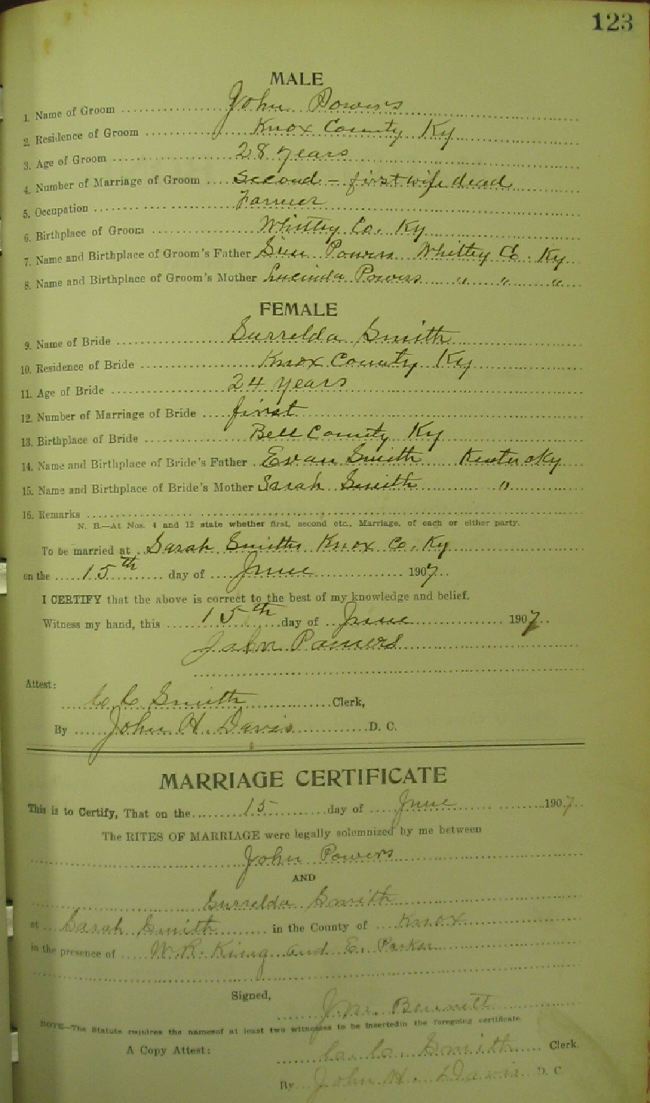 123
MALE
1. Name of Groom John Powers
2. Residence of Groom Knox County Ky
3. Age of Groom 28 years
4. Number of Marriage of Groom Second - first wife dead
5. Occupation Farmer
6. Birthplace of Groom Whitley Co. Ky
7. Name and Birthplace of Groom's Father Powers Whitley Co. Ky
8. Name and Birthplace of Groom's Mother Lucinda Powers " " "
FEMALE
9. Name of Bride Surrelda Smith
10. Residence of Bride Knox County Ky
11. Age of Bride 24 years
12. Number of Marriage of Bride first
13. Birthplace of Bride Bell County Ky
14. Name and Birthplace of Bride's Father Evan Smith Kentucky
15. Name and Birthplace of Bride's Mother Sarah Smith "
16. Remarks
N. B.—At Nos. 4 and 12 state whether first, second etc., Marriage, of each or either party.
To be married at Sarah Smiths Knox Co. Ky
on the 15th day of June 1907
I CERTIFY that the above is correct to the best of my knowledge and belief.
Witness my hand, this 15th day of June 1907
John Powers
Attest:
C C Smith Clerk,
By John H. Davis D. C.
MARRIAGE CERTIFICATE
This is to Certify, That on the 15 day of June 1907
The RITES OF MARRIAGE were legally solemnized by me between
John Powers
AND
Surrelda Smith
at Sarah Smith in the County of Knox
in the presence of W. R. King and E. Parker
Signed,
J. M. Bennett
NOTE—The Statute requires the names of at least two witnesses to be inserted in the foregoing certificate.
A Copy Attest: C. C. Smith Clerk.
By John H. Davis D. C.